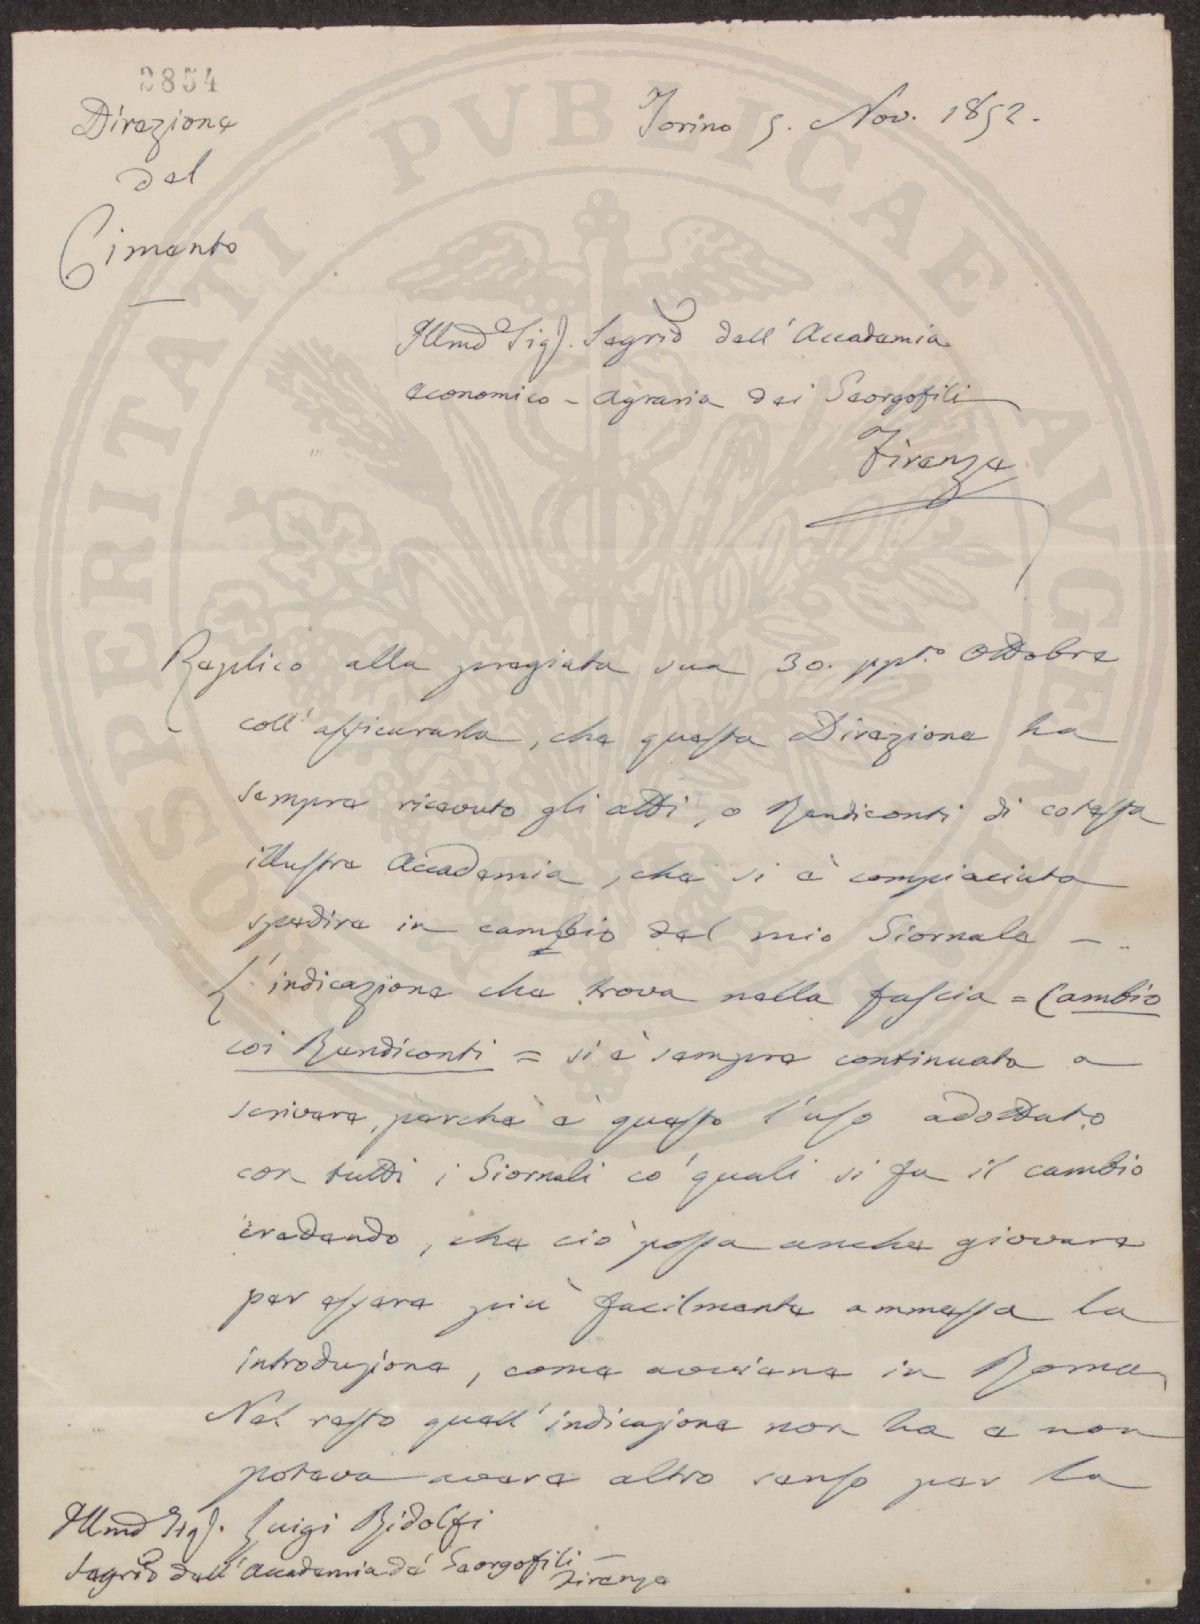 2854
Direzione
del
Cimento
Torino 5. Nov. 1852.
Illmo Sigr. Segrio dell'Accademia
economico-agraria dei Georgofili
Firenze
Replico alla pregiata sua 30. ppto. Ottobre
coll'assicurarla, che questa Direzione ha
sempre ricevuto gli atti, o Rendiconti di cotesta
illustre Accademia, che si è compiaciuta
spedire in cambio del mio Giornale -
L'indicazione che trova nella fascia = Cambio
coi Rendiconti = si è sempre continuata a
scrivere, perchè è questo l'uso adottato
con tutti i Giornali co' quali si fa il cambio
credendo, che ciò possa anche giovare
per essere più facilmente ammessa la
introduzione, come avviene in Roma,
Nel resto quell'indicazione non ha e non
poteva avere altro senso per la
Illmo Sigr. Luigi Ridolfi
Segrio dell'Accademia de' Georgofili -
Firenze
PROSPERITATI PVBLICAE AVGENDAE